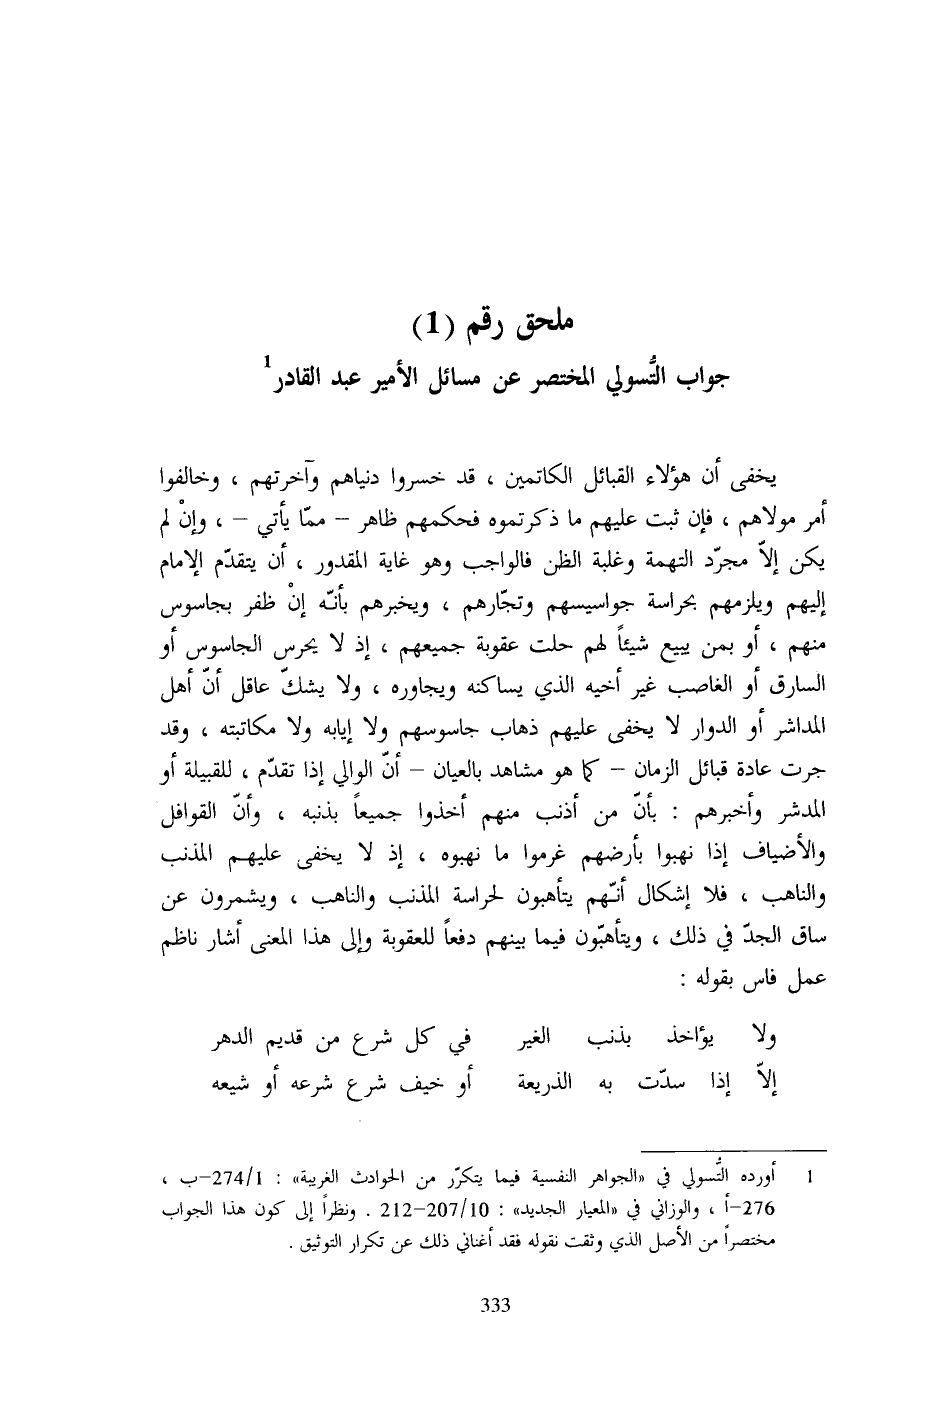 ملحق رقم (1)
جواب التُّسولي المختصر عن مسائل الأمير عبد القادر1
يخفى أن هؤلاء القبائل الكاتمين ، قد خسروا دنياهم وآخرتهم ، وخالفوا
أمر مولاهم ، فإن ثبت عليهم ما ذكرتموه فحكمهم ظاهر – ممّا يأتي – ، وإنْ لم
يكن إلاّ مجرّد التهمة وغلبة الظن فالواجب وهو غاية المقدور ، أن يتقدّم الإمام
إليهم ويلزمهم بحراسة جواسيسهم وتجّارهم ، ويخبرهم بأنّه إنْ ظفر بجاسوس
منهم ، أو بمن يبيع شيئاً لهم حلت عقوبة جميعهم ، إذ لا يحرس الجاسوس أو
السارق أو الغاصب غير أخيه الذي يساكنه ويجاوره ، ولا يشكّ عاقل أنّ أهل
المداشر أو الدوار لا يخفى عليهم ذهاب جاسوسهم ولا إيابه ولا مكاتبته ، وقد
جرت عادة قبائل الزمان – كما هو مشاهد بالعيان – أنّ الوالي إذا تقدّم ، للقبيلة أو
المدشر وأخبرهم : بأنّ من أذنب منهم أخذوا جميعاً بذنبه ، وأنّ القوافل
والأضياف إذا نهبوا بأرضهم غرموا ما نهبوه ، إذ لا يخفى عليهم المذنب
والناهب ، فلا إشكال أنّهم يتأهبون لحراسة المذنب والناهب ، ويشمرون عن
ساق الجدّ في ذلك ، ويتأهبّون فيما بينهم دفعاً للعقوبة وإلى هذا المعنى أشار ناظم
عمل فاس بقوله :
ولا يؤاخذ بذنب الغير في كل شرع من قديم الدهر
إلاّ إذا سدّت به الذريعة أو خيف شرع شرعه أو شيعه
1 أورده التُّسولي في «الجواهر النفسية فيما يتكرّر من الحوادث الغريبة» : 274/1–ب ،
276–أ ، والوزاني في «المعيار الجديد» : 207/10–212 . ونظراً إلى كون هذا الجواب
مختصراً من الأصل الذي وثقت نقوله فقد أغناني ذلك عن تكرار التوثيق .
333